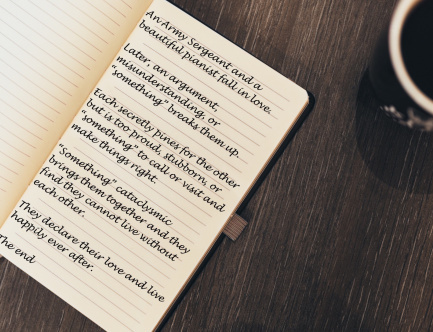 An Army Sergeant and a
beautiful pianist fall in love.
Later, an argument,
misunderstanding, or
"something" breaks them up.
Each secretly pines for the other
but is too proud, stubborn, or
"something" to call or visit and
make things right.
"Something" cataclysmic
brings them together and they
find they cannot live without
each other.
They declare their love and live
happily ever after.
The end